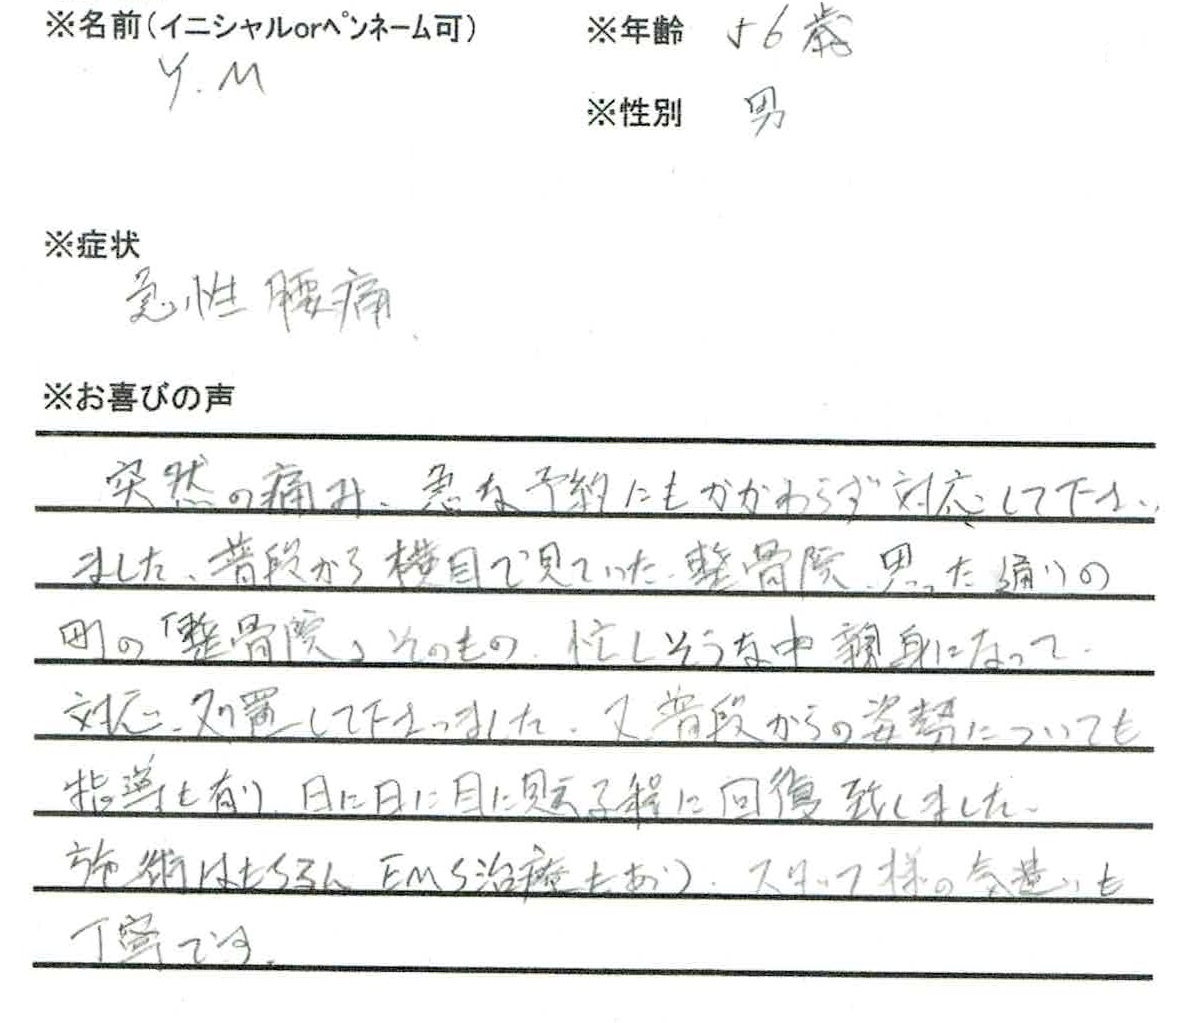 ※名前(イニシャルorペンネーム可)
Y.M
※年齢 56歳
※性別 男
※症状
急性腰痛
※お喜びの声
突然の痛み、急な予約にもかかわらず対応して下さい
ました、普段から横目で見ていた、整骨院、思った通りの
町の「整骨院」そのもの、忙しそうな中親身になって、
対応、処置して下さいました、又普段からの姿勢についても
指導も有り、日に日に目に見える程に回復致しました、
施術はもちろん EMS治療もあり、スタッフ様の気遣いも
丁寧です。